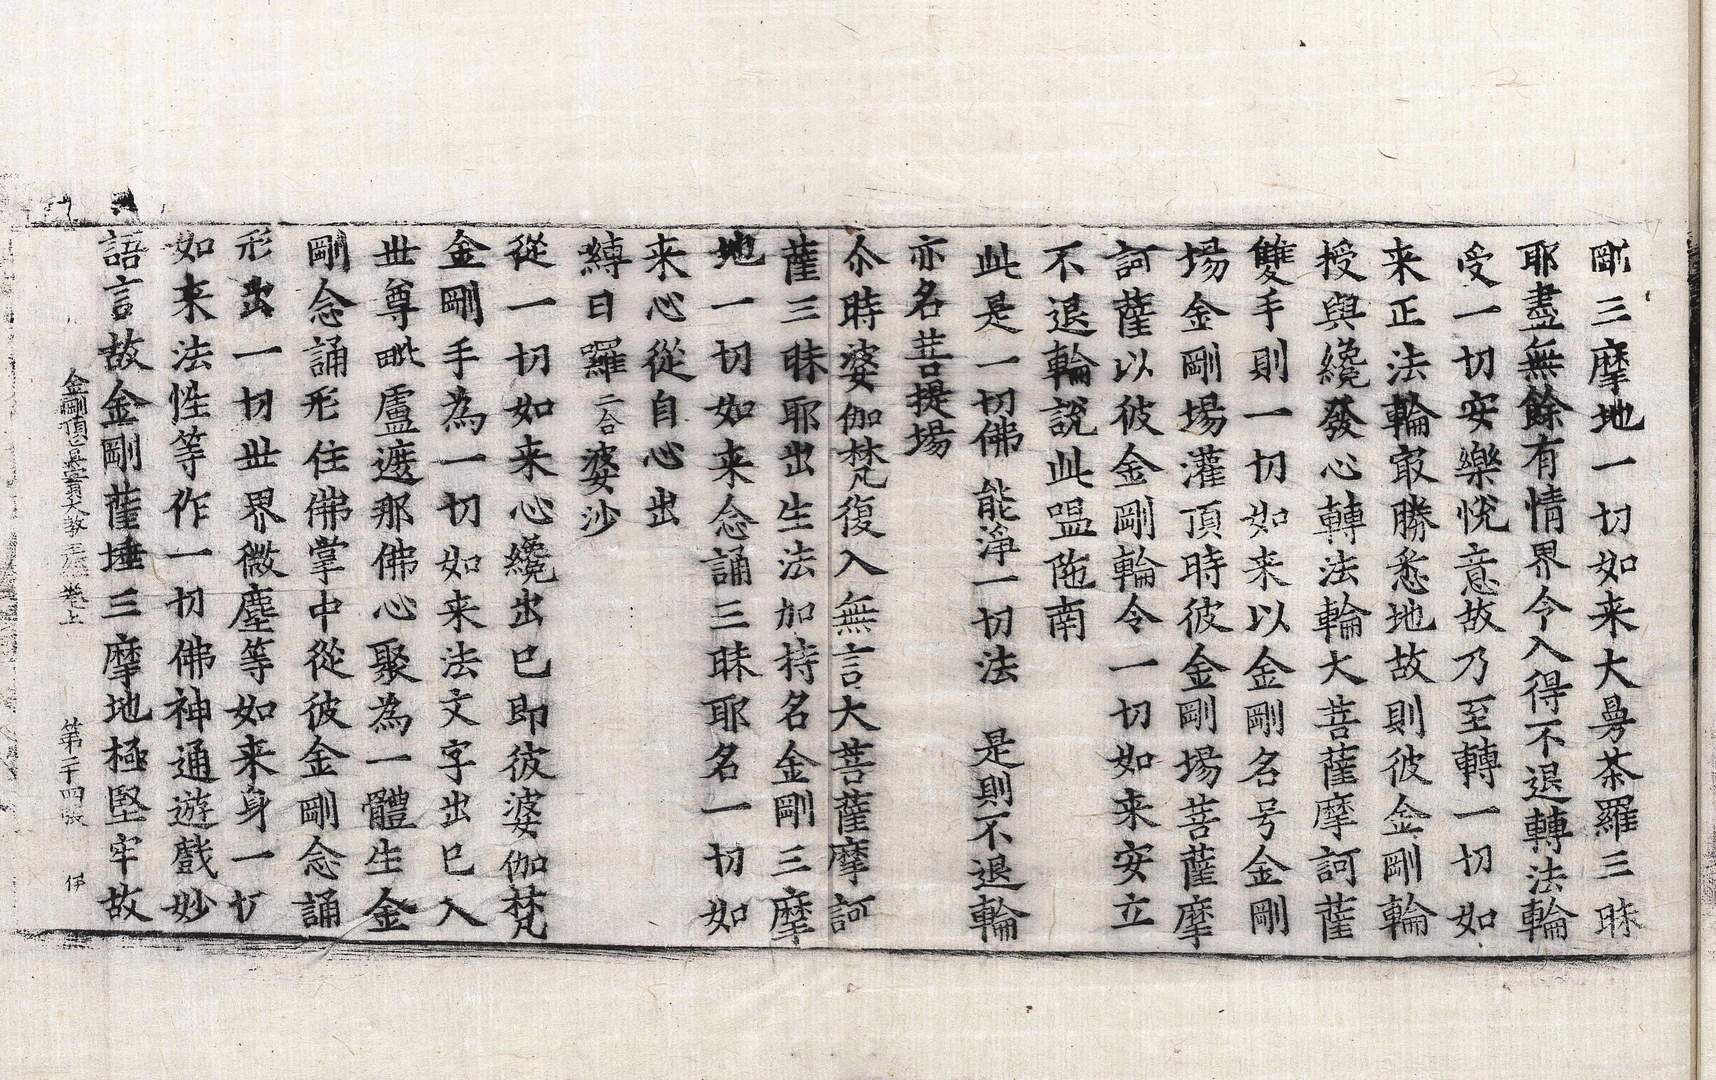 剛三摩地一切如来大曼茶羅三昧
耶盡無餘有情界今入得不退轉法輪
受一切安樂悅意故乃至轉一切如
来正法輪㝡勝悉地故則彼金剛輪
授與纔發心轉法輪大菩薩摩訶薩
雙手則一切如来以金剛名号金剛
場金剛場灌頂時彼金剛場菩薩摩
訶薩以彼金剛輪令一切如来安立
不退輪說此嗢陁南
此是一切佛 能淨一切法 是則不退輪
亦名菩提場
尒時婆伽梵復入無言大菩薩摩訶
薩三昧耶出生法加持名金剛三摩
地一切如来念誦三昧耶名一切如
来心從自心出
縛日羅二合婆沙
從一切如来心纔出已即彼婆伽梵
金剛手為一切如来法文字出已入
世尊毗盧遮那佛心聚為一體生金
剛念誦形住佛掌中從彼金剛念誦
形出一切世界微塵等如来身一切
如来法性等作一切佛神通遊戲妙
語言故金剛薩埵三摩地極堅牢故
金剛頂 大教王 卷上 第二十四張 伊